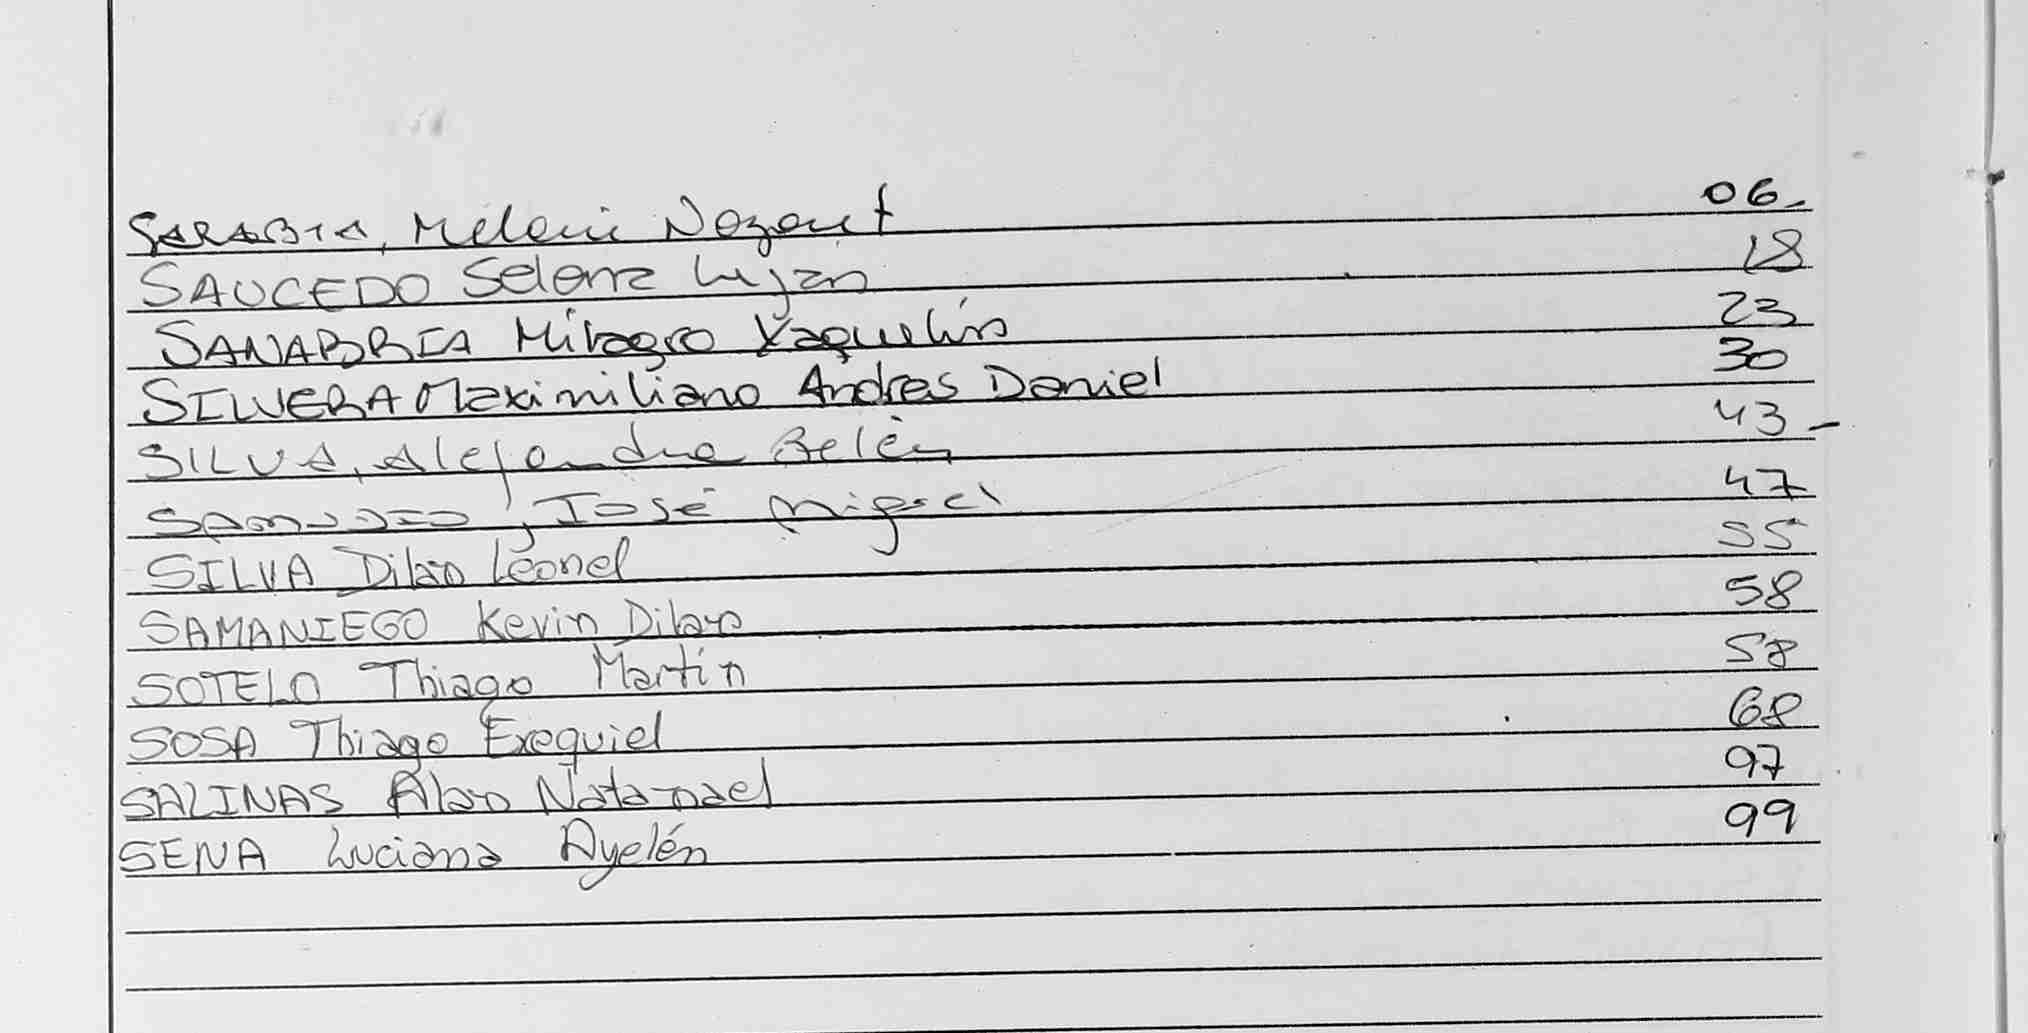 SARABIA, Melani Nazaret 06.
SAUCEDO Selena Lujan 18
SANABRIA Milagro Yaquelin 23
SILVERA Maximiliano Andres Daniel 30
SILVA, Alejandra Belén 43 -
SAMUDIO, José Miguel 47
SILVA Dilan Leonel 55
SAMANIEGO Kevin Dilan 58
SOTELO Thiago Martín 58
SOSA Thiago Exequiel 68
SALINAS Alan Natanael 97
SENA Luciana Ayelén 99